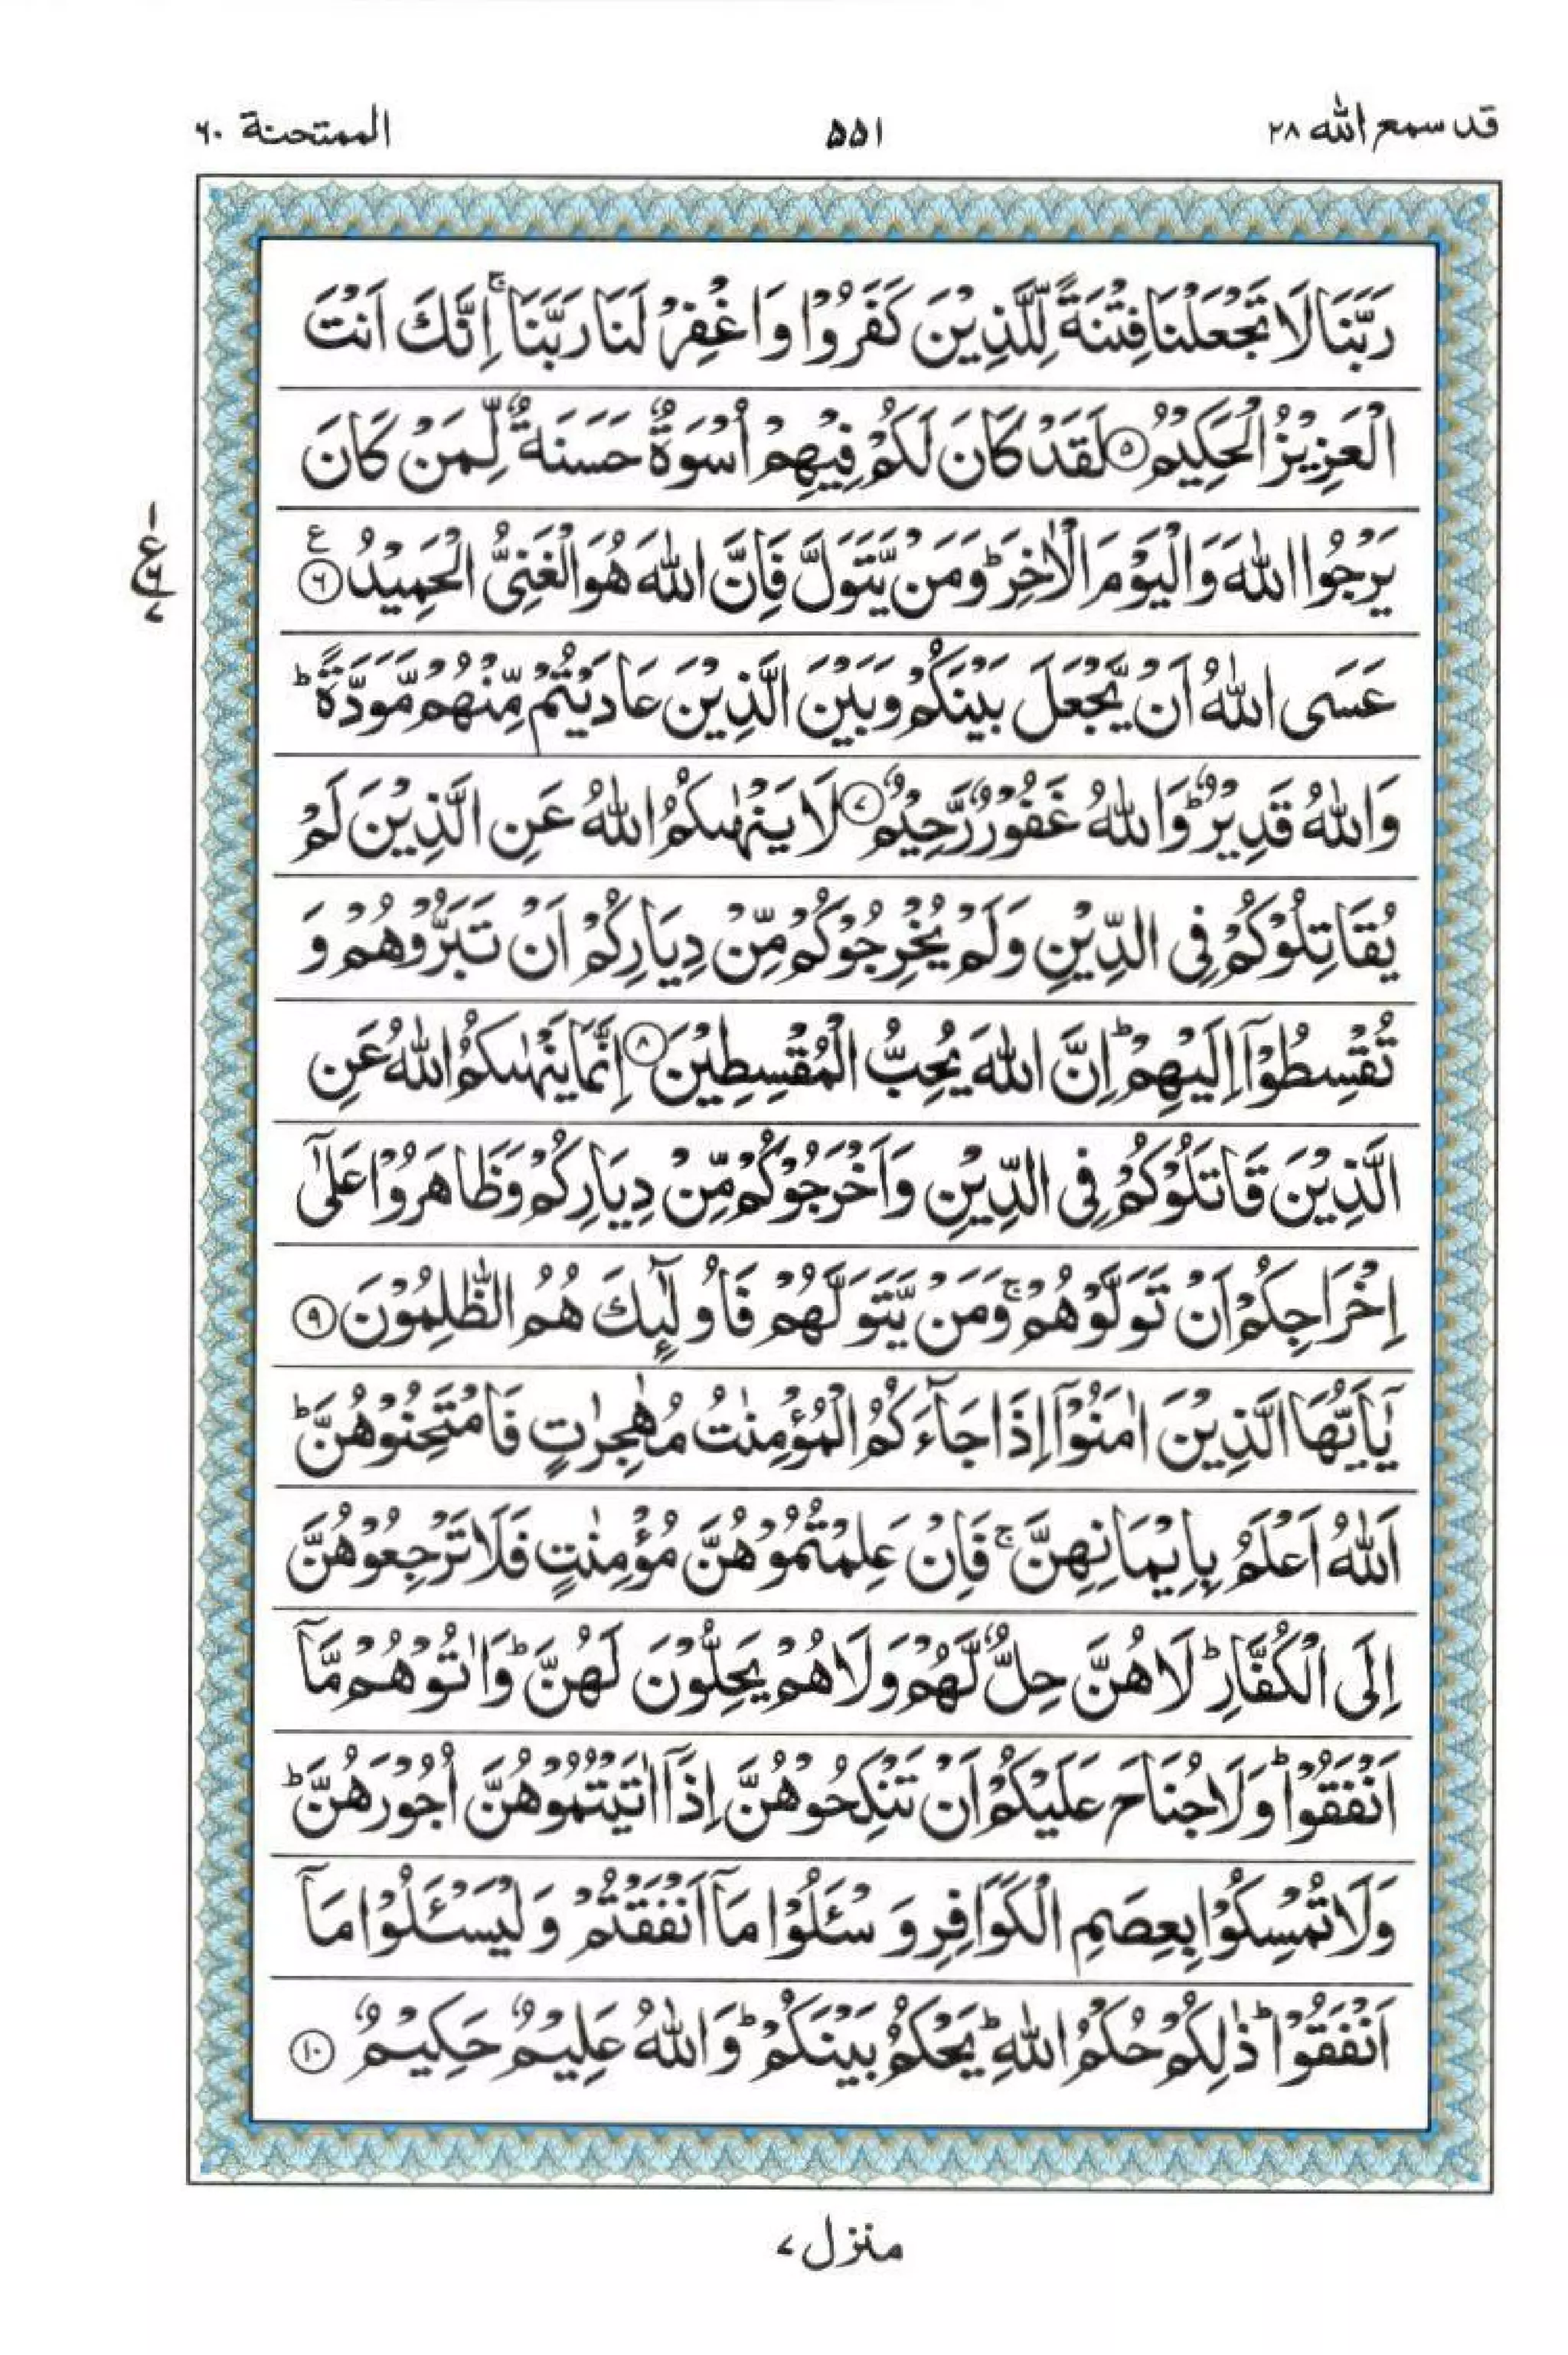 قد سمع الله ٢٨
٥٥١
الممتحنة ٦٠
رَبَّنَا لَا تَجْعَلْنَا فِتْنَةً لِّلَّذِيْنَ كَفَرُوْا وَاغْفِرْ لَنَا رَبَّنَا ۚ اِنَّكَ اَنْتَ
الْعَزِيْزُ الْحَكِيْمُ ۝٥ لَقَدْ كَانَ لَكُمْ فِيْهِمْ اُسْوَةٌ حَسَنَةٌ لِّمَنْ كَانَ
يَرْجُوا اللّٰهَ وَالْيَوْمَ الْاٰخِرَ ؕ وَمَنْ يَّتَوَلَّ فَاِنَّ اللّٰهَ هُوَ الْغَنِىُّ الْحَمِيْدُ ۝٦ ع
عَسَى اللّٰهُ اَنْ يَّجْعَلَ بَيْنَكُمْ وَبَيْنَ الَّذِيْنَ عَادَيْتُمْ مِّنْهُمْ مَّوَدَّةً ؕ
وَاللّٰهُ قَدِيْرٌ ؕ وَاللّٰهُ غَفُوْرٌ رَّحِيْمٌ ۝٧ لَا يَنْهٰىكُمُ اللّٰهُ عَنِ الَّذِيْنَ لَمْ
يُقَاتِلُوْكُمْ فِى الدِّيْنِ وَلَمْ يُخْرِجُوْكُمْ مِّنْ دِيَارِكُمْ اَنْ تَبَرُّوْهُمْ وَ
تُقْسِطُوْۤا اِلَيْهِمْ ؕ اِنَّ اللّٰهَ يُحِبُّ الْمُقْسِطِيْنَ ۝٨ اِنَّمَا يَنْهٰىكُمُ اللّٰهُ عَنِ
الَّذِيْنَ قَاتَلُوْكُمْ فِى الدِّيْنِ وَاَخْرَجُوْكُمْ مِّنْ دِيَارِكُمْ وَظَاهَرُوْا عَلٰٓى
اِخْرَاجِكُمْ اَنْ تَوَلَّوْهُمْ ۚ وَمَنْ يَّتَوَلَّهُمْ فَاُولٰٓئِكَ هُمُ الظّٰلِمُوْنَ ۝٩
يٰۤاَيُّهَا الَّذِيْنَ اٰمَنُوْۤا اِذَا جَآءَكُمُ الْمُؤْمِنٰتُ مُهٰجِرٰتٍ فَامْتَحِنُوْهُنَّ ؕ
اَللّٰهُ اَعْلَمُ بِاِيْمَانِهِنَّ ۚ فَاِنْ عَلِمْتُمُوْهُنَّ مُؤْمِنٰتٍ فَلَا تَرْجِعُوْهُنَّ
اِلَى الْكُفَّارِ ؕ لَا هُنَّ حِلٌّ لَّهُمْ وَلَا هُمْ يَحِلُّوْنَ لَهُنَّ ؕ وَاٰتُوْهُمْ مَّاۤ
اَنْفَقُوْا ؕ وَلَا جُنَاحَ عَلَيْكُمْ اَنْ تَنْكِحُوْهُنَّ اِذَاۤ اٰتَيْتُمُوْهُنَّ اُجُوْرَهُنَّ ؕ
وَلَا تُمْسِكُوْا بِعِصَمِ الْكَوَافِرِ وَ سْـَٔلُوْا مَاۤ اَنْفَقْتُمْ وَلْيَسْـَٔلُوْا مَاۤ
اَنْفَقُوْا ؕ ذٰلِكُمْ حُكْمُ اللّٰهِ ؕ يَحْكُمُ بَيْنَكُمْ ؕ وَاللّٰهُ عَلِيْمٌ حَكِيْمٌ ۝١٠
١
ع ٦
٧
منزل ٧